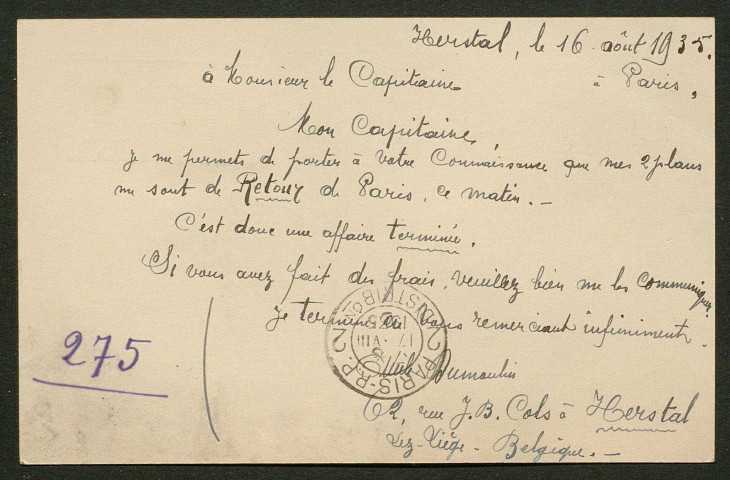 Herstal, le 16 août 1935.
à Monsieur le Capitaine à Paris,
Mon Capitaine,
Je me permets de porter à votre Connaissance que mes 2 plans
me sont de Retour de Paris, ce matin. –
C'est donc une affaire terminée.
Si vous avez fait des frais, veuillez bien me les communiquer.
Je termine en vous remerciant infiniment.
Dumoulin
62, rue J.B. Cols à Herstal
Lez-Liége - Belgique. –
275
PARIS-R.P. 2
DISTRIBON
17 VIII
1935